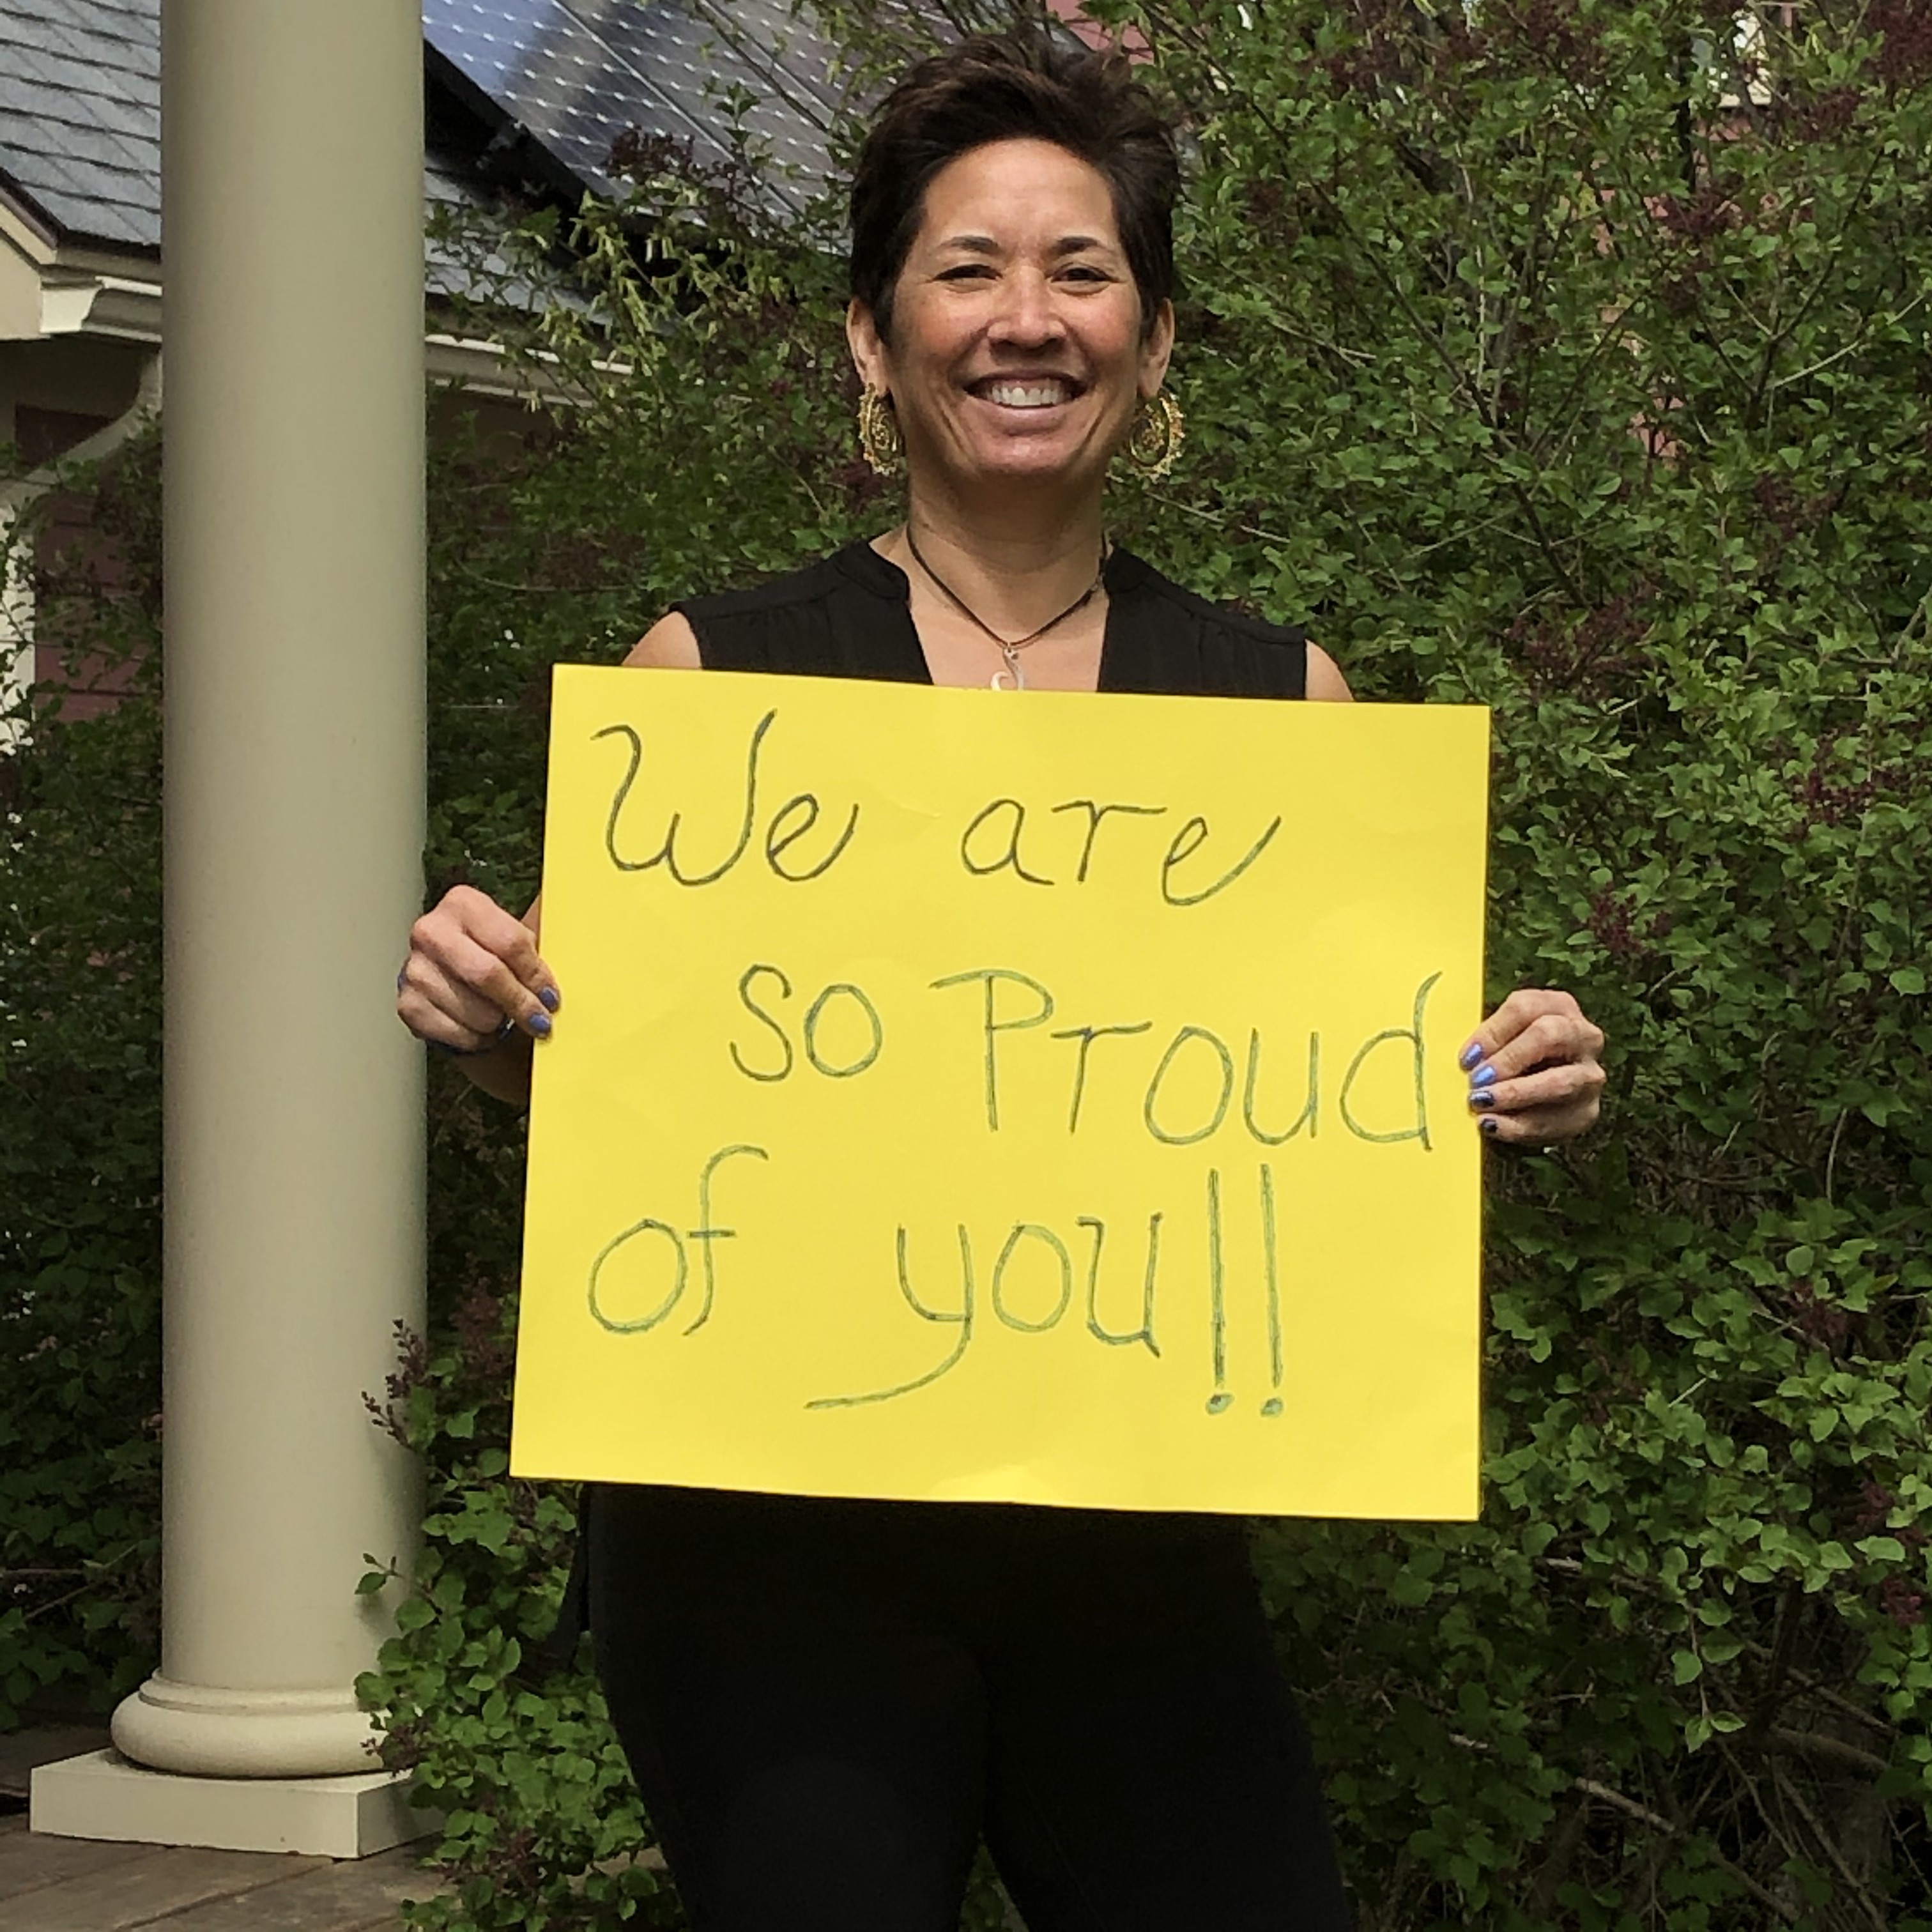 We are
so Proud
of you!!